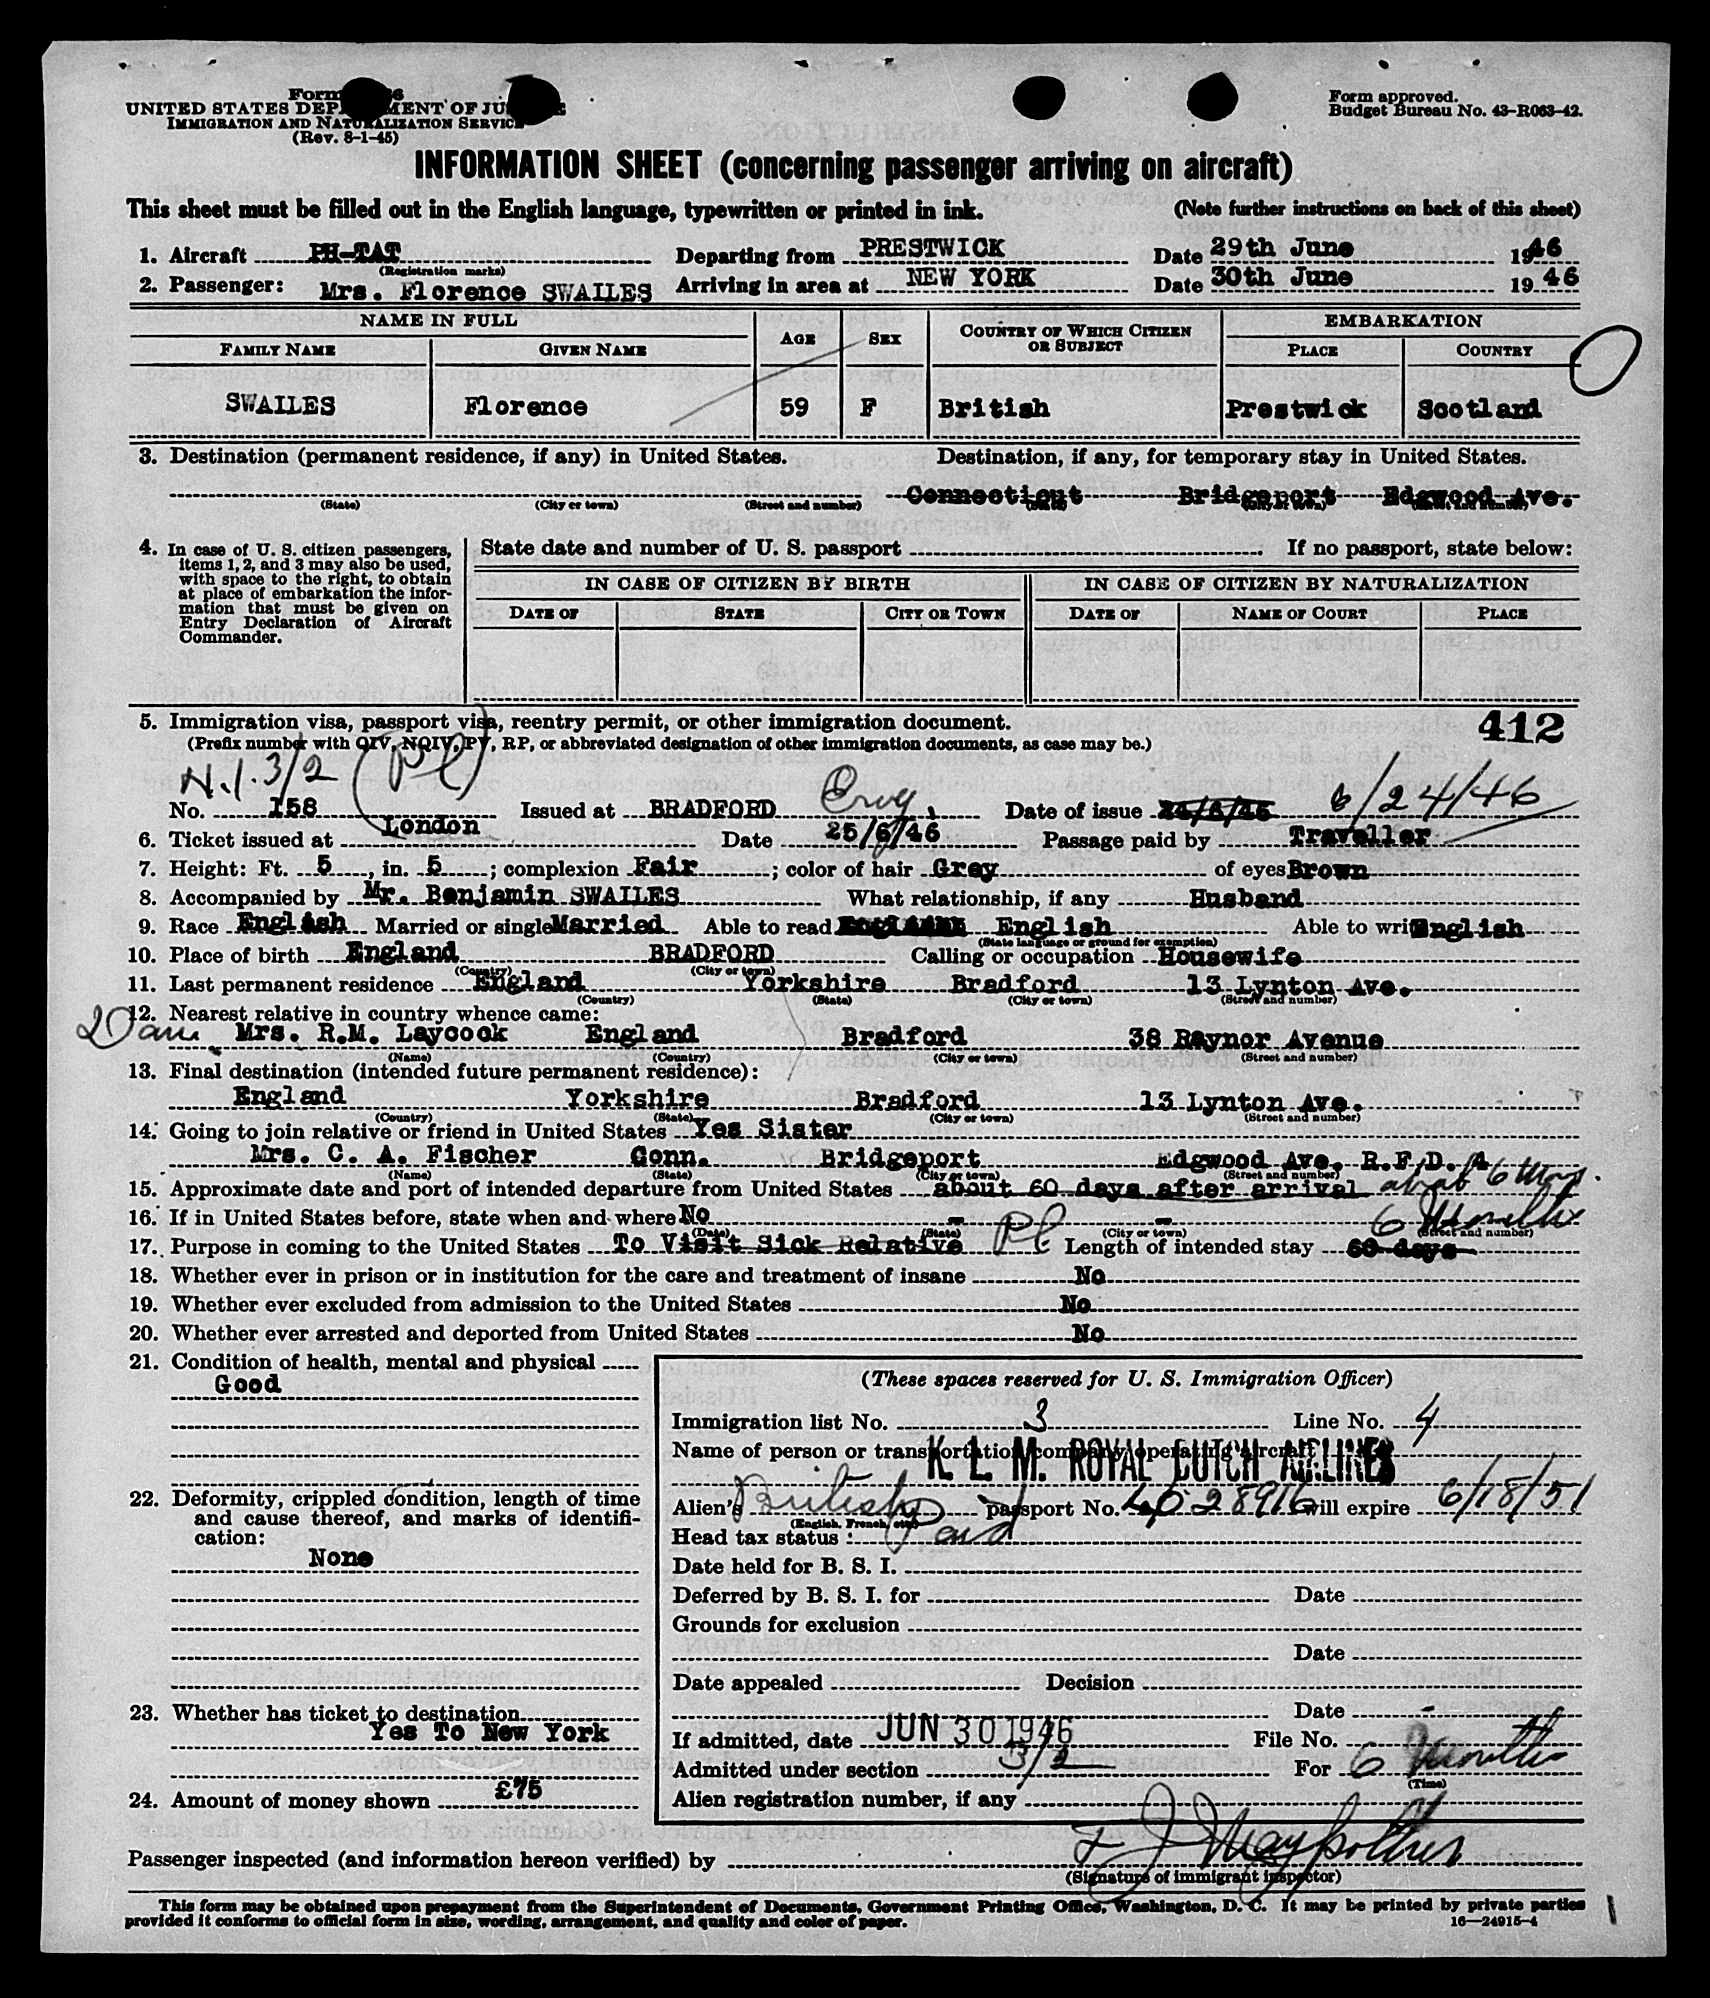 Form 6
UNITED STATES DEP MENT OF JU E
IMMIGRATION AND NATURALIZATION SERVICE
(Rev. 8-1-45)
Form approved.
Budget Bureau No. 43-R063-42.
INFORMATION SHEET (concerning passenger arriving on aircraft)
This sheet must be filled out in the English language, typewritten or printed in ink. (Note further instructions on back of this sheet)
1. Aircraft PH-TAT Departing from PRESTWICK Date 29th June 1946
(Registration marks)
2. Passenger: Mrs. Florence SWAILES Arriving in area at NEW YORK Date 30th June 1946
NAME IN FULL AGE SEX COUNTRY OF WHICH CITIZEN OR SUBJECT EMBARKATION
FAMILY NAME GIVEN NAME PLACE COUNTRY
SWAILES Florence 59 F British Prestwick Scotland
3. Destination (permanent residence, if any) in United States. Destination, if any, for temporary stay in United States.
Connecticut Bridgeport Edgwood Ave.
(State) (City or town) (Street and number) (State) (City or town) (Street and number)
4. In case of U. S. citizen passengers,
items 1, 2, and 3 may also be used,
with space to the right, to obtain
at place of embarkation the infor-
mation that must be given on
Entry Declaration of Aircraft
Commander.
State date and number of U. S. passport If no passport, state below:
IN CASE OF CITIZEN BY BIRTH IN CASE OF CITIZEN BY NATURALIZATION
DATE OF STATE CITY OR TOWN DATE OF NAME OF COURT PLACE
5. Immigration visa, passport visa, reentry permit, or other immigration document. 412
(Prefix number with QIV, NQIV, PV, RP, or abbreviated designation of other immigration documents, as case may be.)
N.I. 3/2 (Pl)
No. 158 Issued at BRADFORD Eng, Date of issue 24/6/46 6/24/46
6. Ticket issued at London Date 25/6/46 Passage paid by Traveller
7. Height: Ft. 5, in. 5; complexion Fair; color of hair Grey of eyes Brown
8. Accompanied by Mr. Benjamin SWAILES What relationship, if any Husband
9. Race English Married or single Married Able to read English English Able to write English
(State language or ground for exemption)
10. Place of birth England BRADFORD Calling or occupation Housewife
(Country) (City or town)
11. Last permanent residence England Yorkshire Bradford 13 Lynton Ave.
(Country) (State) (City or town) (Street and number)
12. Nearest relative in country whence came:
Dau. Mrs. R.M. Laycock England Bradford 38 Raynor Avenue
(Name) (Country) (City or town) (Street and number)
13. Final destination (intended future permanent residence):
England Yorkshire Bradford 13 Lynton Ave.
(Country) (State) (City or town) (Street and number)
14. Going to join relative or friend in United States Yes Sister
Mrs. C. A. Fischer Conn. Bridgeport Edgwood Ave. R.F.D. 4
(Name) (State) (City or town) (Street and number)
15. Approximate date and port of intended departure from United States about 60 days after arrival about 6 mos.
16. If in United States before, state when and where No - -
(Date) (State) (City or town) (Street and number)
6 Months
17. Purpose in coming to the United States To Visit Sick Relative Pl Length of intended stay 60 days
18. Whether ever in prison or in institution for the care and treatment of insane No
19. Whether ever excluded from admission to the United States No
20. Whether ever arrested and deported from United States No
21. Condition of health, mental and physical
Good
22. Deformity, crippled condition, length of time
and cause thereof, and marks of identifi-
cation:
None
23. Whether has ticket to destination
Yes To New York
24. Amount of money shown £75
(These spaces reserved for U. S. Immigration Officer)
Immigration list No. 3 Line No. 4
Name of person or transportation company operating aircraft
K. L. M. ROYAL DUTCH AIRLINES
Alien's British passport No. 28916 will expire 6/18/51
(English, French, etc.)
Head tax status: pd
Date held for B. S. I.
Deferred by B. S. I. for Date
Grounds for exclusion
Date
Date appealed Decision
Date
If admitted, date JUN 30 1946 File No.
Admitted under section 3/2 For 6 Months
(Time)
Alien registration number, if any
Passenger inspected (and information hereon verified) by
(Signature of immigrant inspector)
This form may be obtained upon prepayment from the Superintendent of Documents, Government Printing Office, Washington, D. C. It may be printed by private parties
provided it conforms to official form in size, wording, arrangement, and quality and color of paper. 16—24915-4